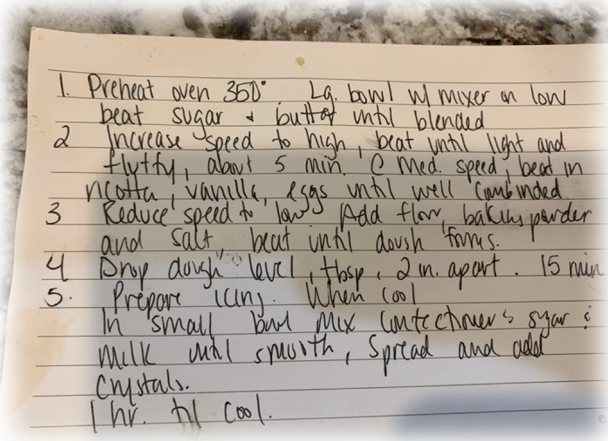 1. Preheat oven 350° Lg. bowl w/ mixer on low
beat sugar & butter until blended
2 Increase speed to high, beat until light and
fluffy, about 5 min. @ Med. speed, beat in
ricotta, vanilla, eggs until well combinded
3 Reduce speed to low Add flour, baking powder
and salt, beat until dough forms.
4 Drop dough level, tbsp, 2 in. apart. 15 min
5. Prepare icing. When cool
In small bowl mix confectioner's sugar &
milk until smooth, Spread and add
Crystals.
1 hr. til cool.